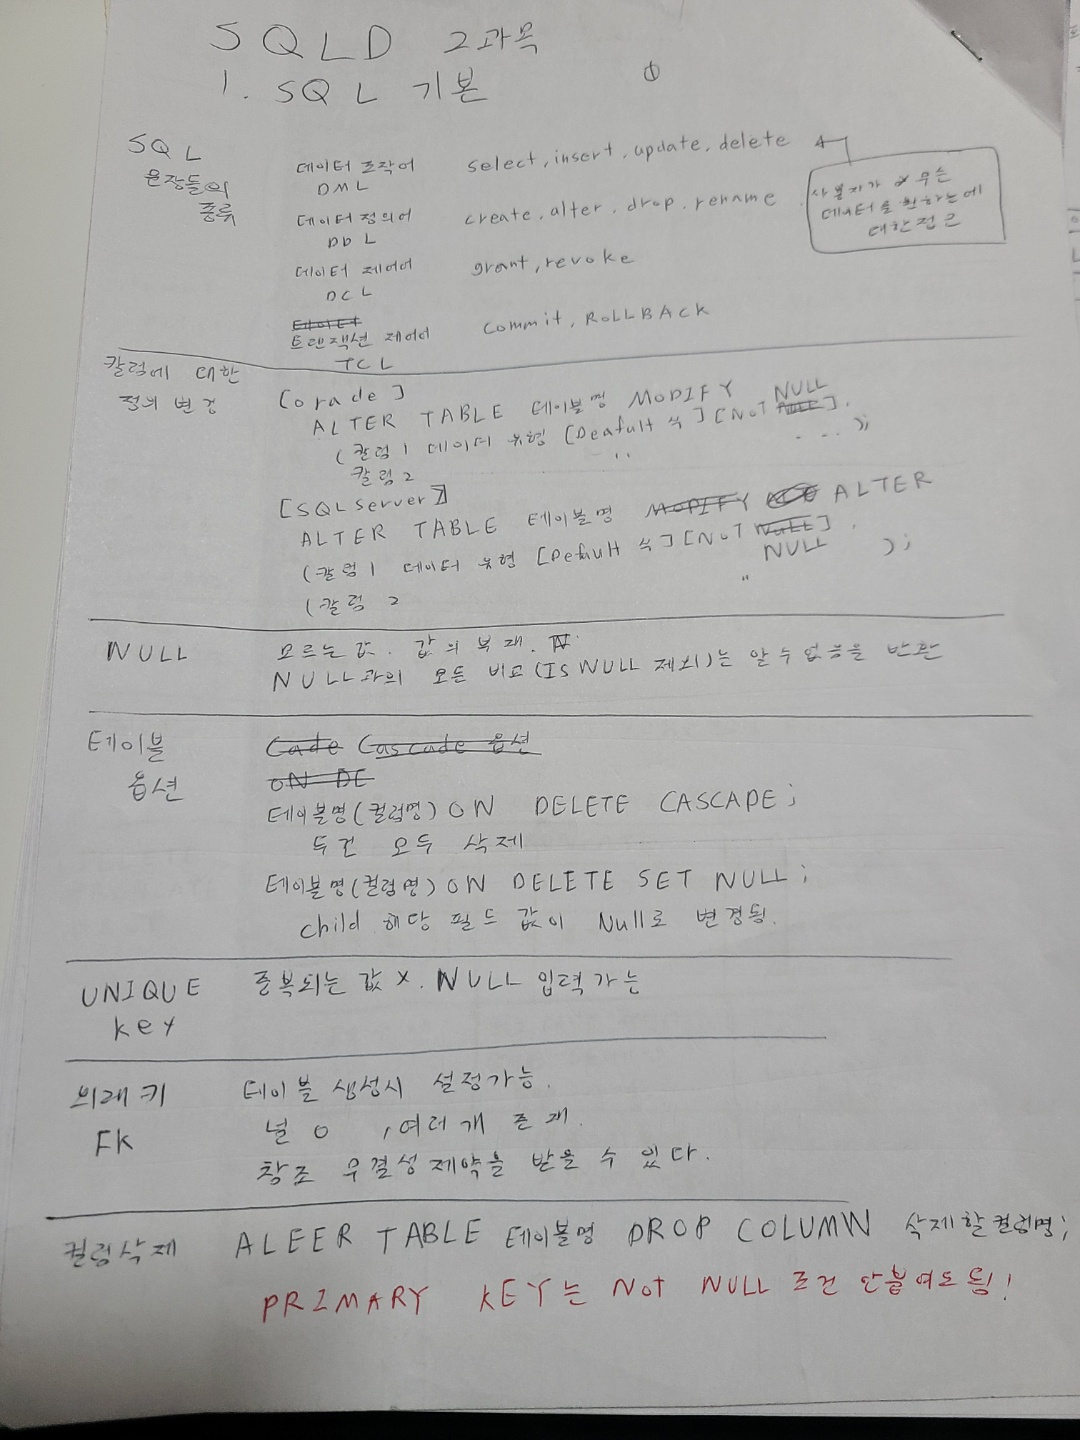 SQLD 2과목
1. SQL 기본
①
SQL
문장들의
종류
데이터 조작어
DML
select, insert, update, delete
사용자가 무슨
데이터를 원하는에
대한접근
데이터 정의어
DDL
create. alter. drop. rename
데이터 제어어
DCL
grant, revoke
데이터
트랜잭션 제어어
TCL
commit, ROLLBACK
칼럼에 대한
정의 변경
[orade]
ALTER TABLE 테이블명 MODIFY
(칼럼1 데이터 유형 [Deafult 식] [NOT NULL].
칼럼2 " ...);
[SQLServer]
ALTER TABLE 테이블명 MODIFY ALTER
(칼럼1 데이터 유형 [Default 식] [NOT NULL].
(칼럼 2 " );
NULL
모르는 값. 값의 부재.
NULL과의 모든 비교(IS NULL 제외)는 알 수 없음을 반환
테이블
옵션
Cade Cascade 옵션
ON DE
테이블명(컬럼명) ON DELETE CASCADE;
두건 모두 삭제
테이블명(컬럼명) ON DELETE SET NULL;
child 해당 필드 값이 Null로 변경됨.
UNIQUE
key
중복되는 값 X. NULL 입력가능
외래키
FK
테이블 생성시 설정가능.
널 O , 여러개 존재.
참조 무결성 제약을 받을 수 있다.
컬럼삭제
ALEER TABLE 테이블명 DROP COLUMN 삭제할컬럼명;
PRIMARY KEY는 Not NULL 조건 안붙여도됨!